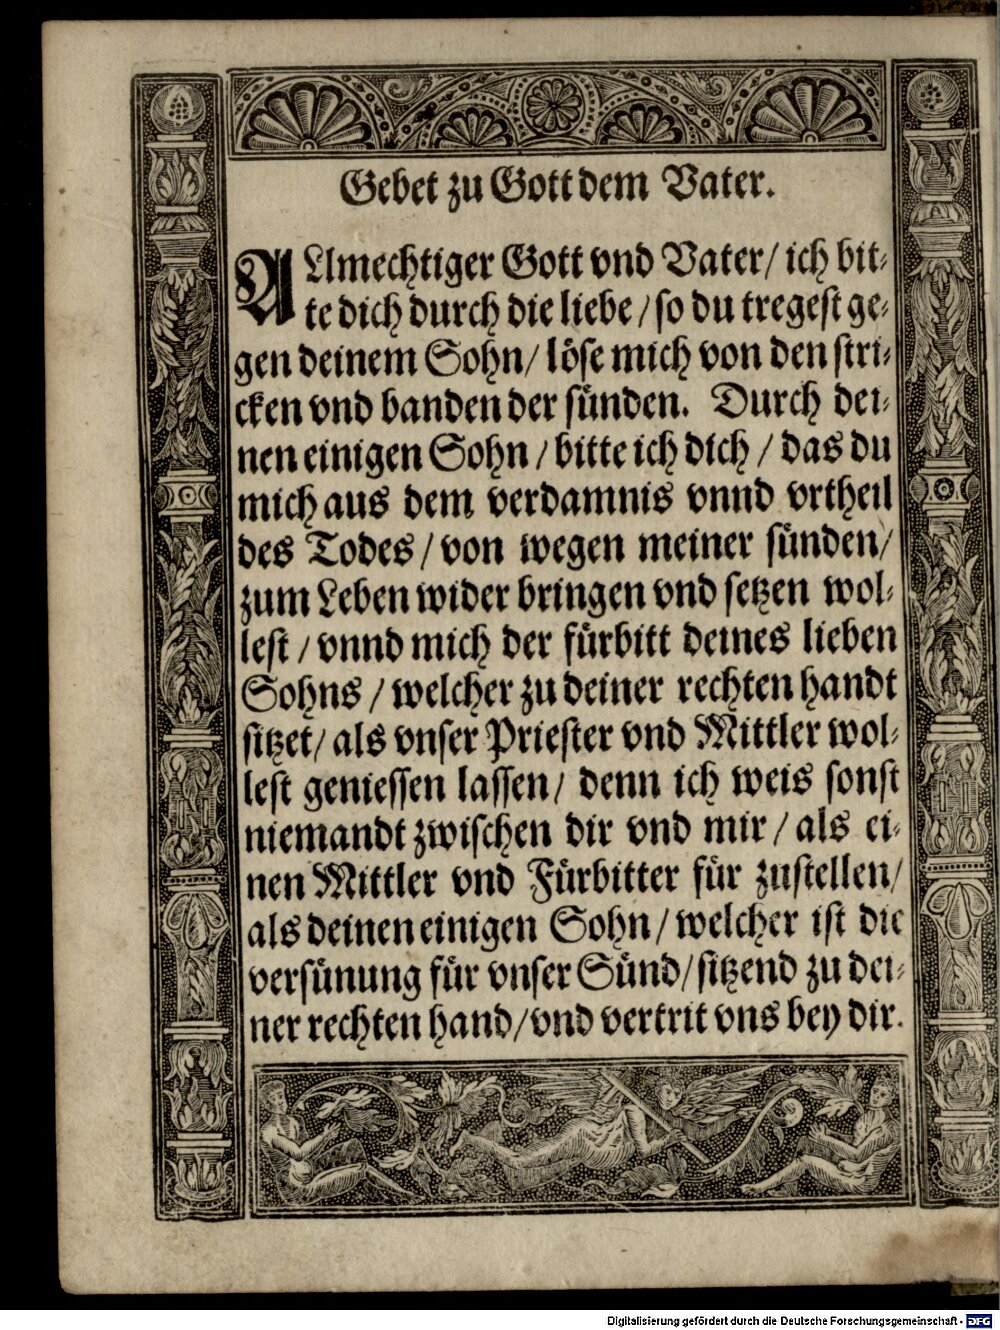 Gebet zu Gott dem Vater.
ALlmechtiger Gott vnd Vater/ ich bit⸗
te dich durch die liebe/ so du tregest ge⸗
gen deinem Sohn/ löse mich von den stri⸗
cken vnd banden der sünden. Durch dei⸗
nen einigen Sohn/ bitte ich dich/ das du
mich aus dem verdamnis vnnd vrtheil
des Todes/ von wegen meiner sünden/
zum Leben wider bringen vnd setzen wol⸗
lest/ vnnd mich der fürbitt deines lieben
Sohns/ welcher zu deiner rechten handt
sitzet/ als vnser Priester vnd Mittler wol⸗
lest geniessen lassen/ denn ich weis sonst
niemandt zwischen dir vnd mir/ als ei⸗
nen Mittler vnd Fürbitter für zustellen/
als deinen einigen Sohn/ welcher ist die
versünung für vnser Sünd/ sitzend zu dei⸗
ner rechten hand/ vnd vertrit vns bey dir.
Digitalisierung gefördert durch die Deutsche Forschungsgemeinschaft - DFG